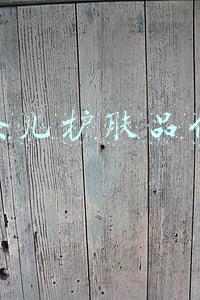 儿护肤品